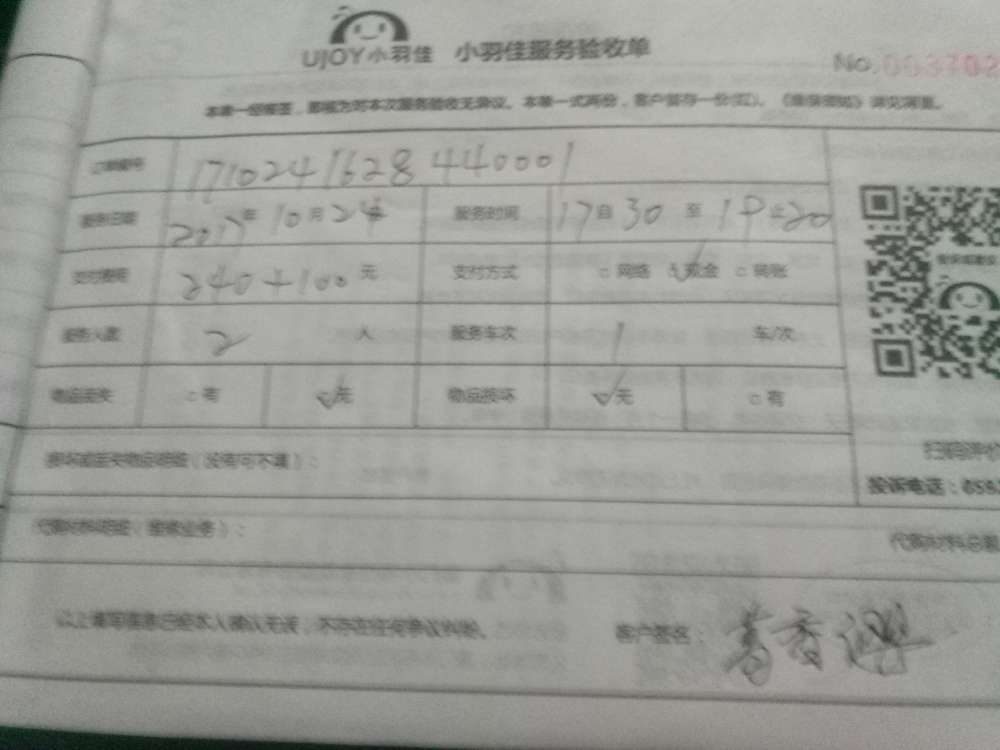 UJOY小羽佳 小羽佳服务验收单
No.003702
本单一经签签，即视为对本次服务验收无异议。本单一式两份，客户留存一份(红)。
订单编号 1710241628440001
服务日期 2017年10月24 服务时间 17自30至19 20
支付费用 240+100元 支付方式 网络 现金 转账
服务人数 2人 服务车次 1车/次
物品丢失 有 无 物品损坏 无 有
损坏或丢失物品明细（没有可不填）：
扫码评价
投诉电话：0592
代购材料明细（维修业务）：
代购材料总额
以上填写信息已经本人确认无误，不存在任何争议纠纷。 客户签名：